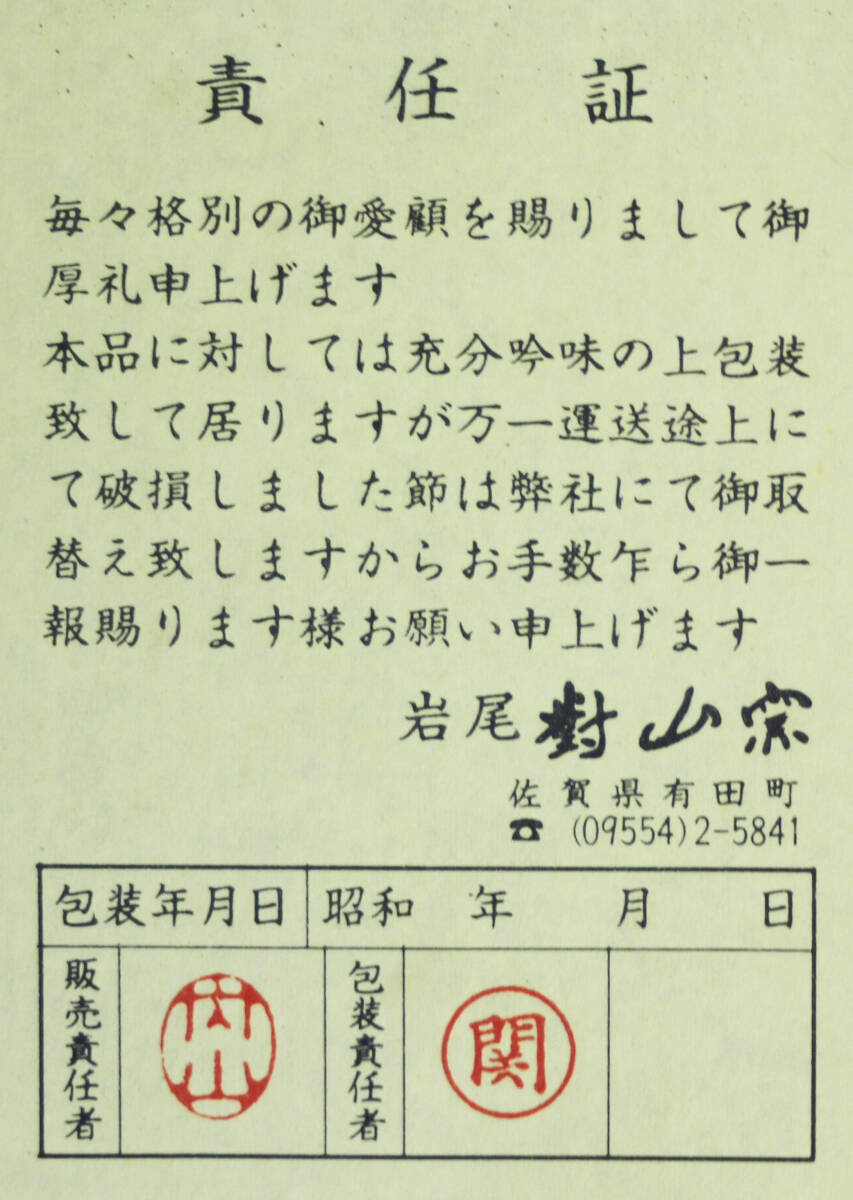 責任証
毎々格別の御愛顧を賜りまして御
厚礼申上げます
本品に対しては充分吟味の上包装
致して居りますが万一運送途上に
て破損しました節は弊社にて御取
替え致しますからお手数乍ら御一
報賜ります様お願い申上げます
岩尾對山窯
佐賀県有田町
☎ (09554)2-5841
包装年月日 昭和 年 月 日
販売責任者 内山 包装責任者 関